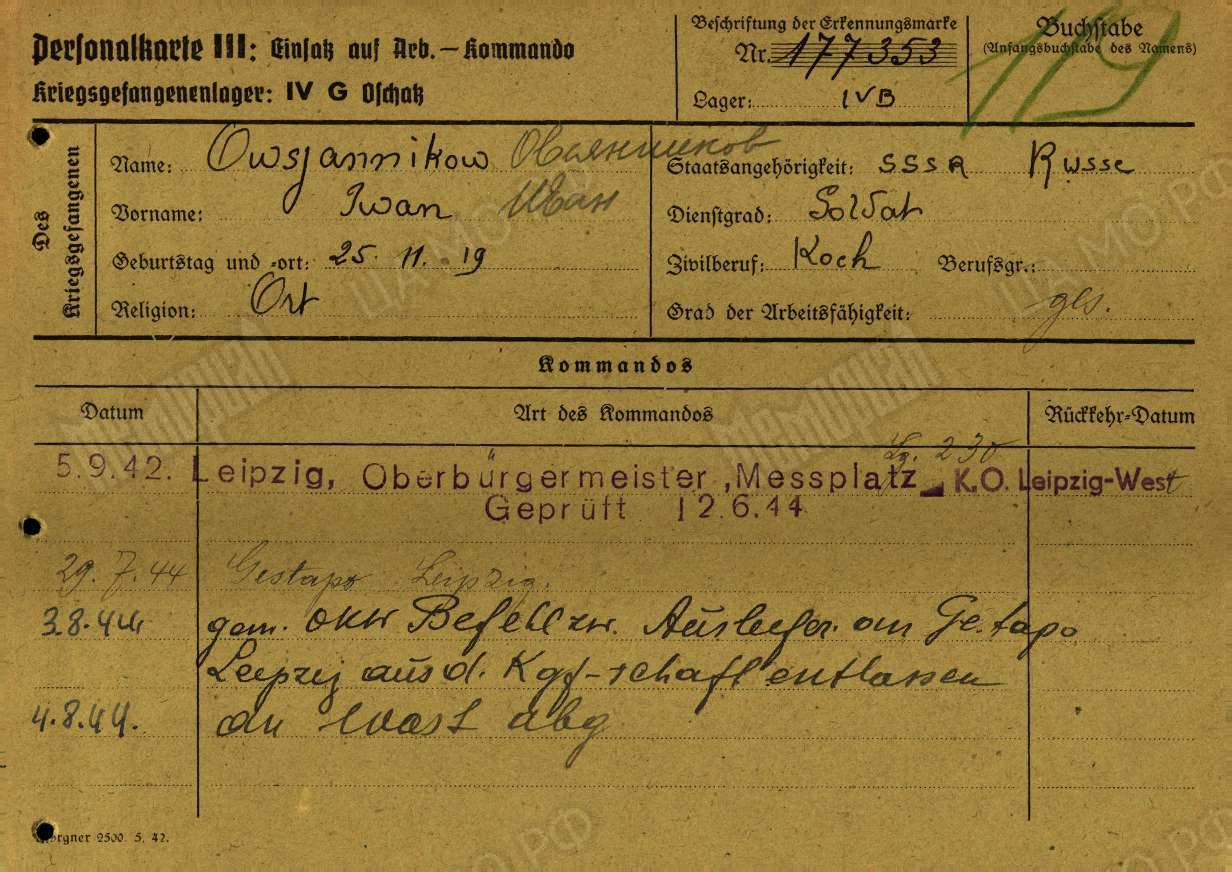 Personalkarte III: Einsatz auf Arb.-Kommando
Kriegsgefangenenlager: IV G Oschatz
Beschriftung der Erkennungsmarke
Nr. 177353
Lager: IVB
Buchstabe
(Anfangsbuchstabe des Namens)
119
Des Kriegsgefangenen
Name: Owsjannikow Овсянников
Vorname: Iwan Иван
Geburtstag und -ort: 25. 11. 19
Religion: Ort
Staatsangehörigkeit: SSSR Russe
Dienstgrad: Soldat
Zivilberuf: Koch Berufsgr.:
Grad der Arbeitsfähigkeit: ges.
Kommandos
Datum Art des Kommandos Rückkehr-Datum
Lg. 230
5.9.42. Leipzig, Oberbürgermeister, Messplatz K.O. Leipzig-West
Geprüft 12.6.44
29.7.44 Gestapo Leipzig.
3.8.44 gem. OKW Befehl zw. Ausliefer. an Gestapo
Leipzig aus d. Kgf-schaft entlassen
4.8.44. an Wast abg
Morgner 2500. 5. 42.
Мемориал
Мемориал
ЦА МО РФ
ЦА МО РФ